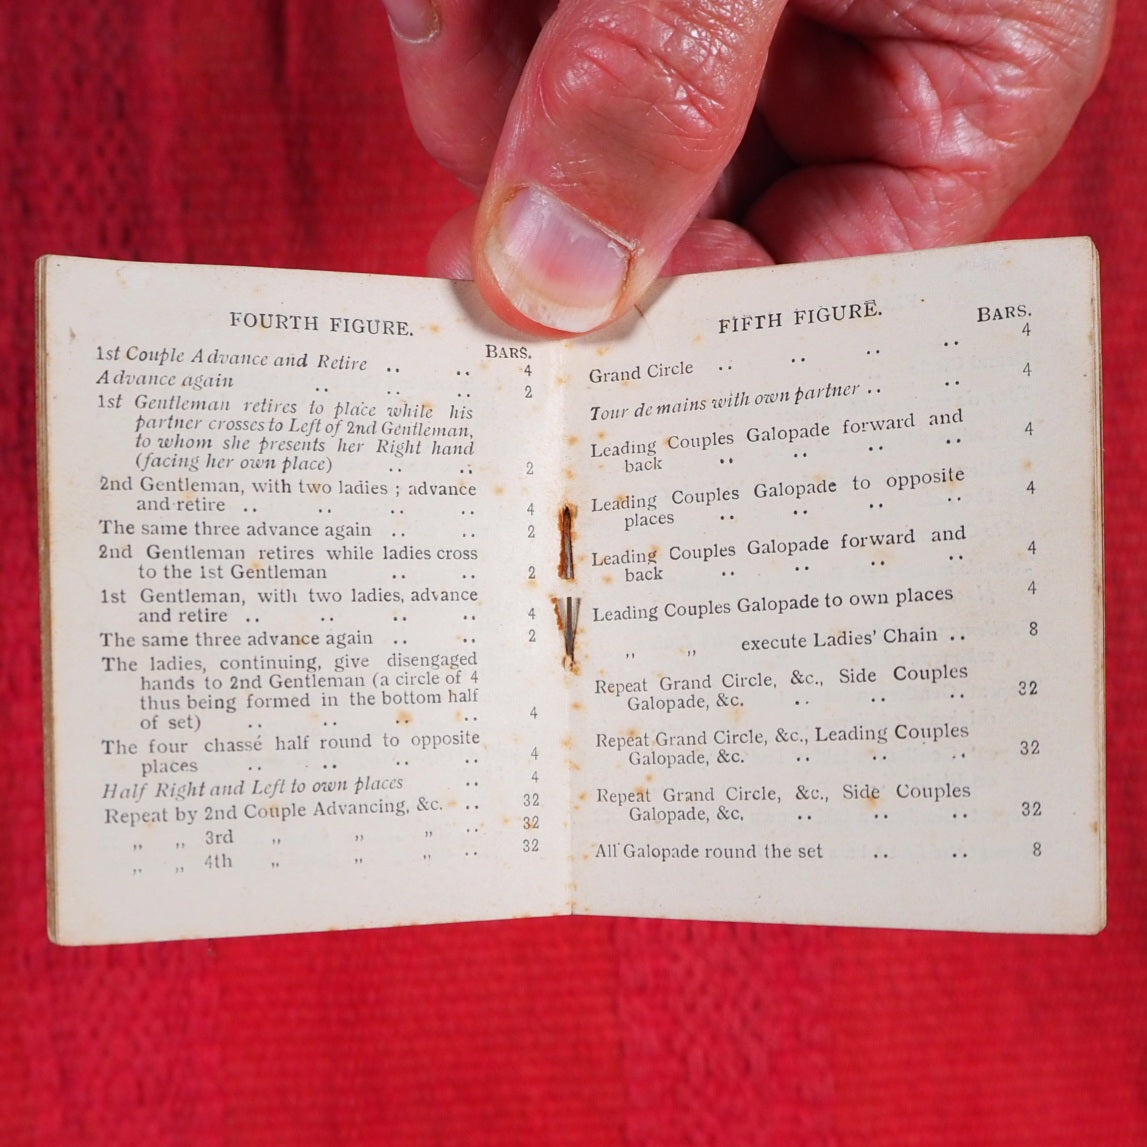 FOURTH FIGURE.
BARS.
1st Couple Advance and Retire .. .. 4
Advance again .. .. .. 2
1st Gentleman retires to place while his
partner crosses to Left of 2nd Gentleman,
to whom she presents her Right hand
(facing her own place) .. .. 2
2nd Gentleman, with two ladies ; advance
and retire .. .. .. .. 4
The same three advance again .. .. 2
2nd Gentleman retires while ladies cross
to the 1st Gentleman .. .. 2
1st Gentleman, with two ladies, advance
and retire .. .. .. .. 4
The same three advance again .. .. 2
The ladies, continuing, give disengaged
hands to 2nd Gentleman (a circle of 4
thus being formed in the bottom half
of set) .. .. .. .. 4
The four chassé half round to opposite
places .. .. .. .. 4
Half Right and Left to own places .. 4
Repeat by 2nd Couple Advancing, &c. .. 32
„ „ 3rd „ „ „ .. 32
„ „ 4th „ „ „ .. 32
FIFTH FIGURE.
BARS.
Grand Circle .. .. .. .. 4
Tour de mains with own partner .. .. 4
Leading Couples Galopade forward and
back .. .. .. .. 4
Leading Couples Galopade to opposite
places .. .. .. .. 4
Leading Couples Galopade forward and
back .. .. .. .. 4
Leading Couples Galopade to own places 4
„ „ execute Ladies' Chain .. 8
Repeat Grand Circle, &c., Side Couples
Galopade, &c. .. .. .. 32
Repeat Grand Circle, &c., Leading Couples
Galopade, &c. .. .. .. 32
Repeat Grand Circle, &c., Side Couples
Galopade, &c. .. .. .. 32
All Galopade round the set .. .. 8